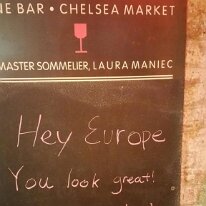 NE BAR • CHELSEA MARKET
MASTER SOMMELIER, LAURA MANIEC
Hey Europe
You look great!